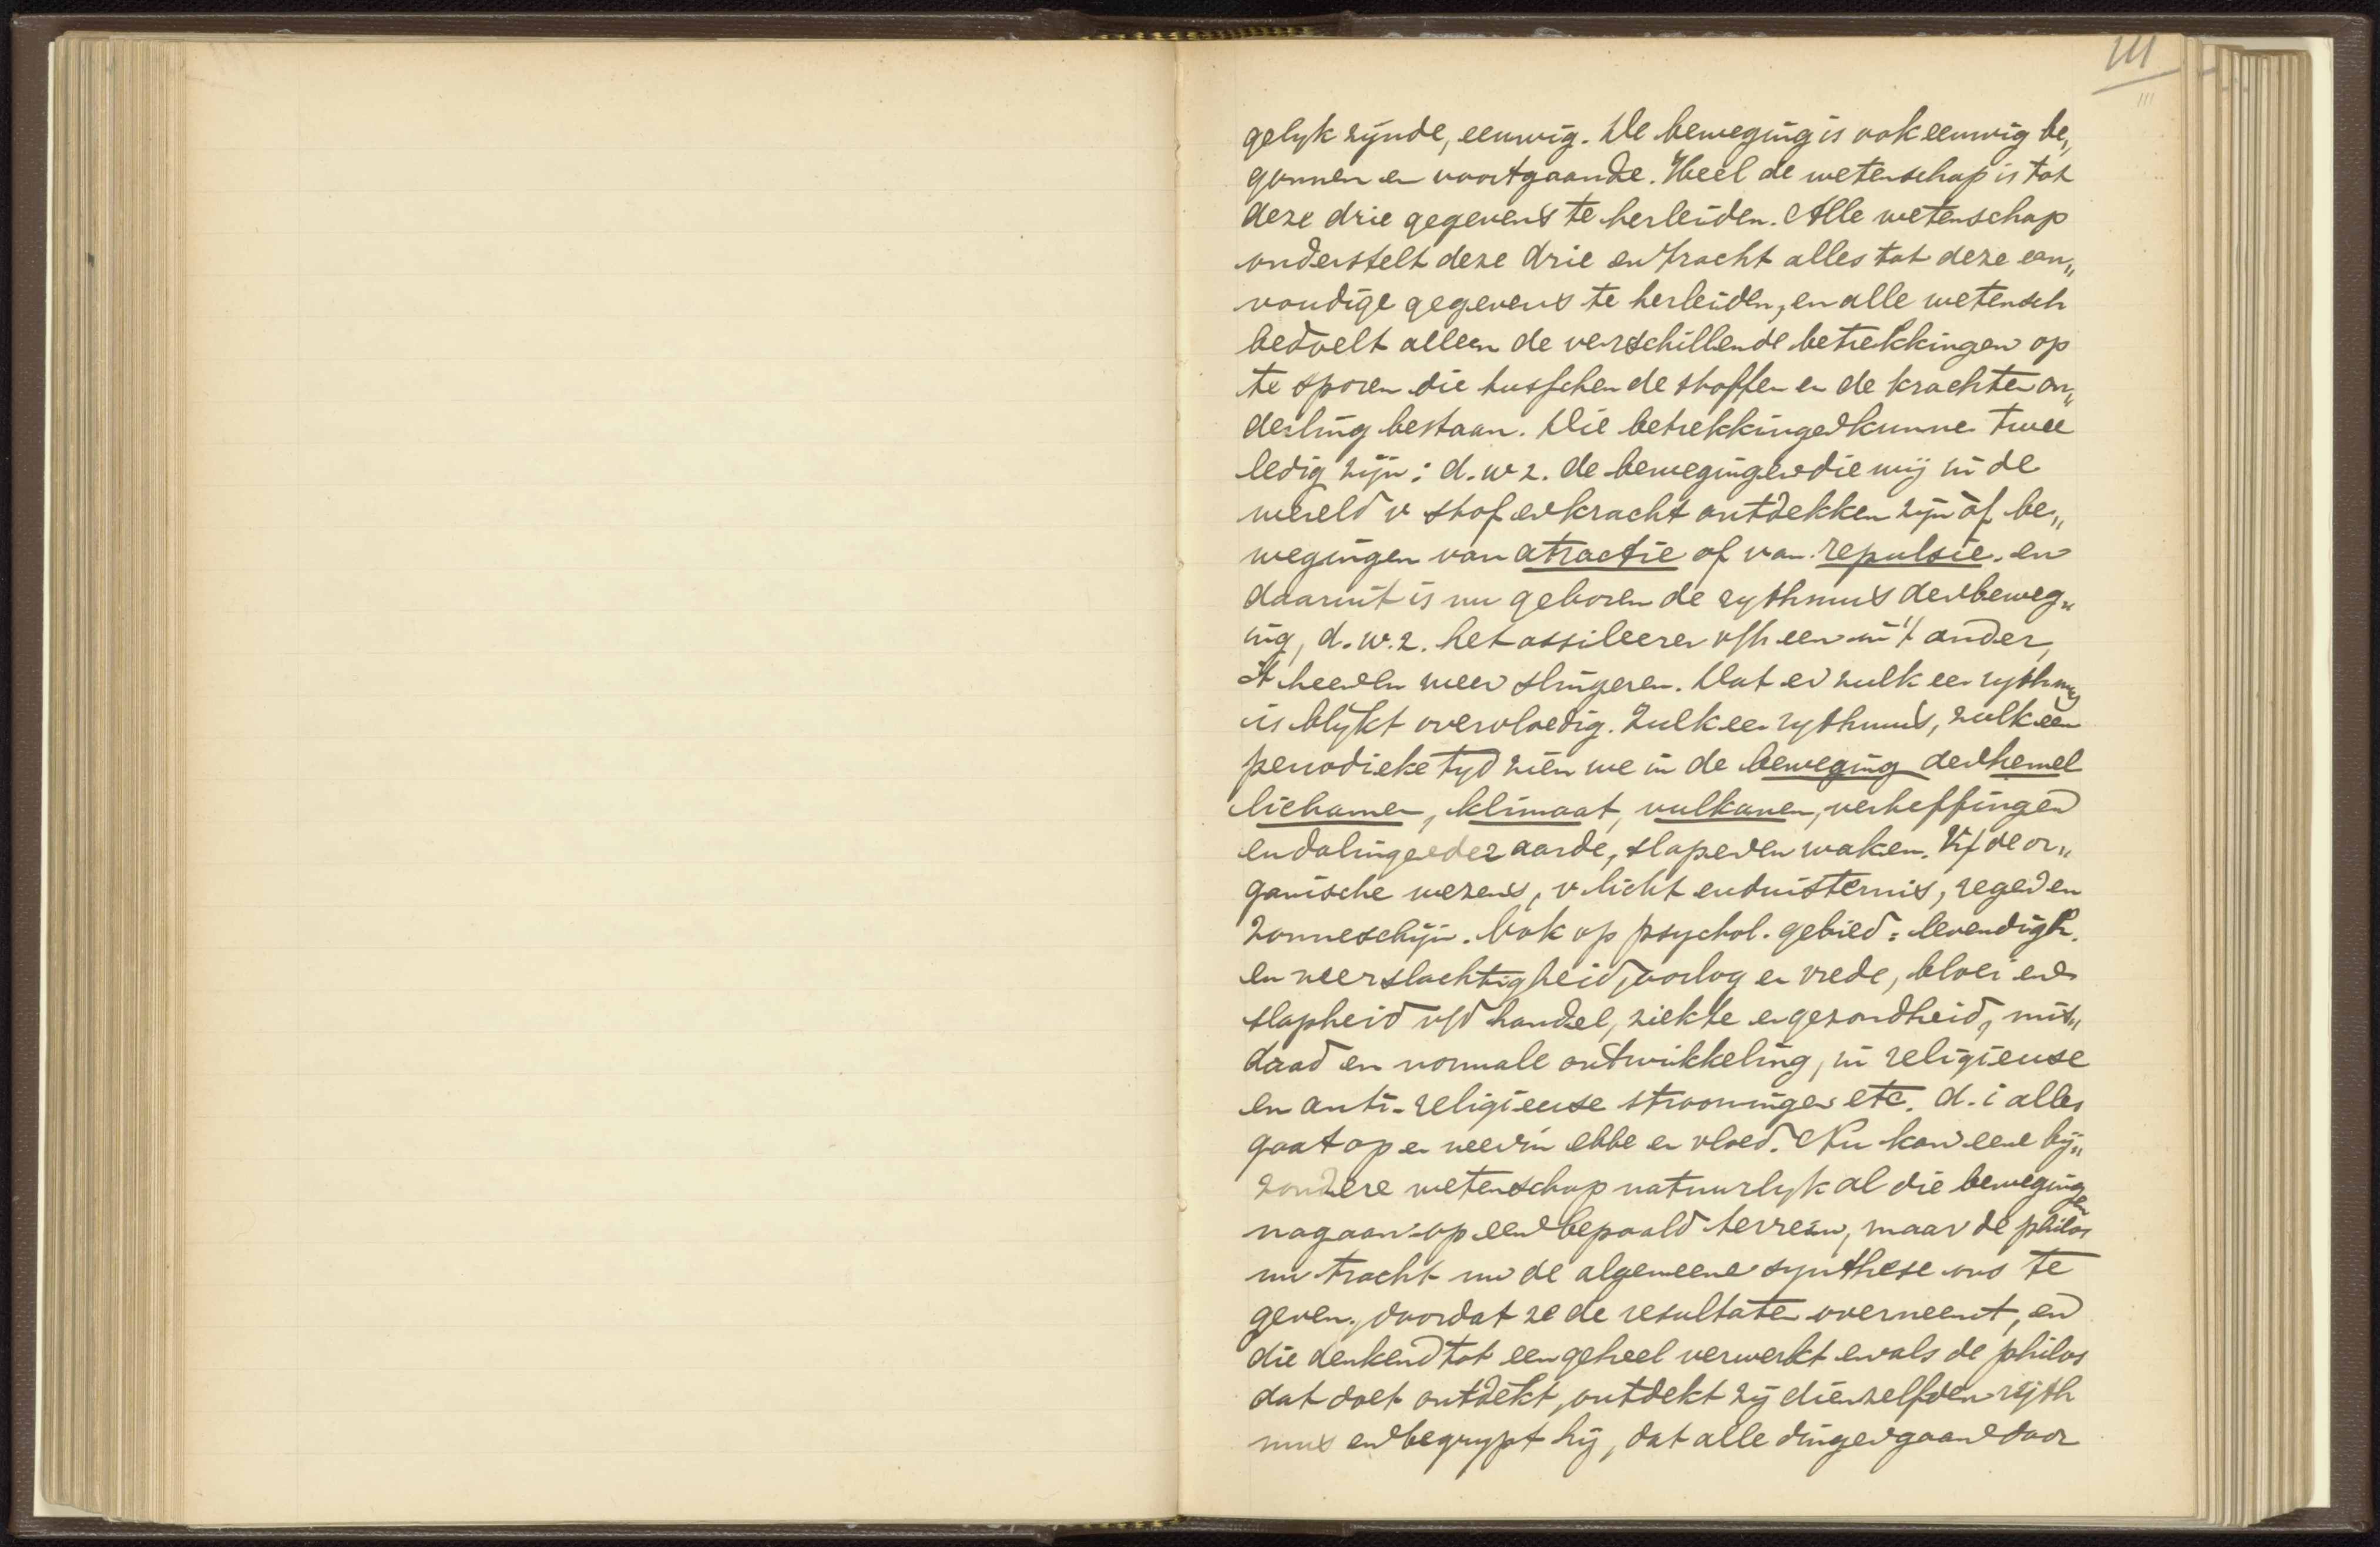 111
111
gelyk zynde, eeuwig. De beweging is ook eeuwig be„
gonnen en voortgaande. Heel de wetenschap is tot
deze drie gegevens te herleiden. Alle wetenschap
onderstelt deze drie en tracht alles tot deze een„
voudige gegevens te herleiden, en alle wetensch
bedoelt alleen de verschillende betrekkingen op
te sporen die tusschen de stoffen en de krachten on„
derling bestaan. Die betrekkingen kunnen twee
ledig zijn: d.w.z. de bewegingen die wij in de
wereld v stof en kracht ontdekken zijn òf be„
wegingen van atractie of van repulsie, en
daaruit is nu geboren de rythmus der beweg„
ing, d.w.z. het ossileeren v/h een in 't ander,
't heen en weer slingeren. Dat er zulk een rythmus
is blijkt overvloedig. Zulk een rythmus, zulk een
periodieke tyd zien we in de beweging der hemel
lichamen, klimaat, vulkanen, verheffingen
en dalingen der aarde, slapen en waken. V/ de or„
ganische wezens, v licht en duisternis, regen en
zonneschijn. Ook op psychol. gebied: levendigh.
en neerslachtigheid, oorlog en vrede, bloei en
slapheid v/d handel, ziekte en gezondheid, mis„
daad en normale ontwikkeling, in religieuse
en anti-religieuse stroomingen etc. d.i alles
gaat op en neer in ebbe en vloed. Nu kan eene bij„
zondere wetenschap natuurlyk al die bewegingen
nagaan op een bepaald terrein, maar de philos
nu tracht nu de algemeene synthese ons te
geven, doordat ze de resultaten overneemt, en
die denkend tot een geheel verwerkt en als de philos
dat doet ontdekt, ontdekt zij dienzelfden ryth
mus en begrypt hij, dat alle dingen gaan door